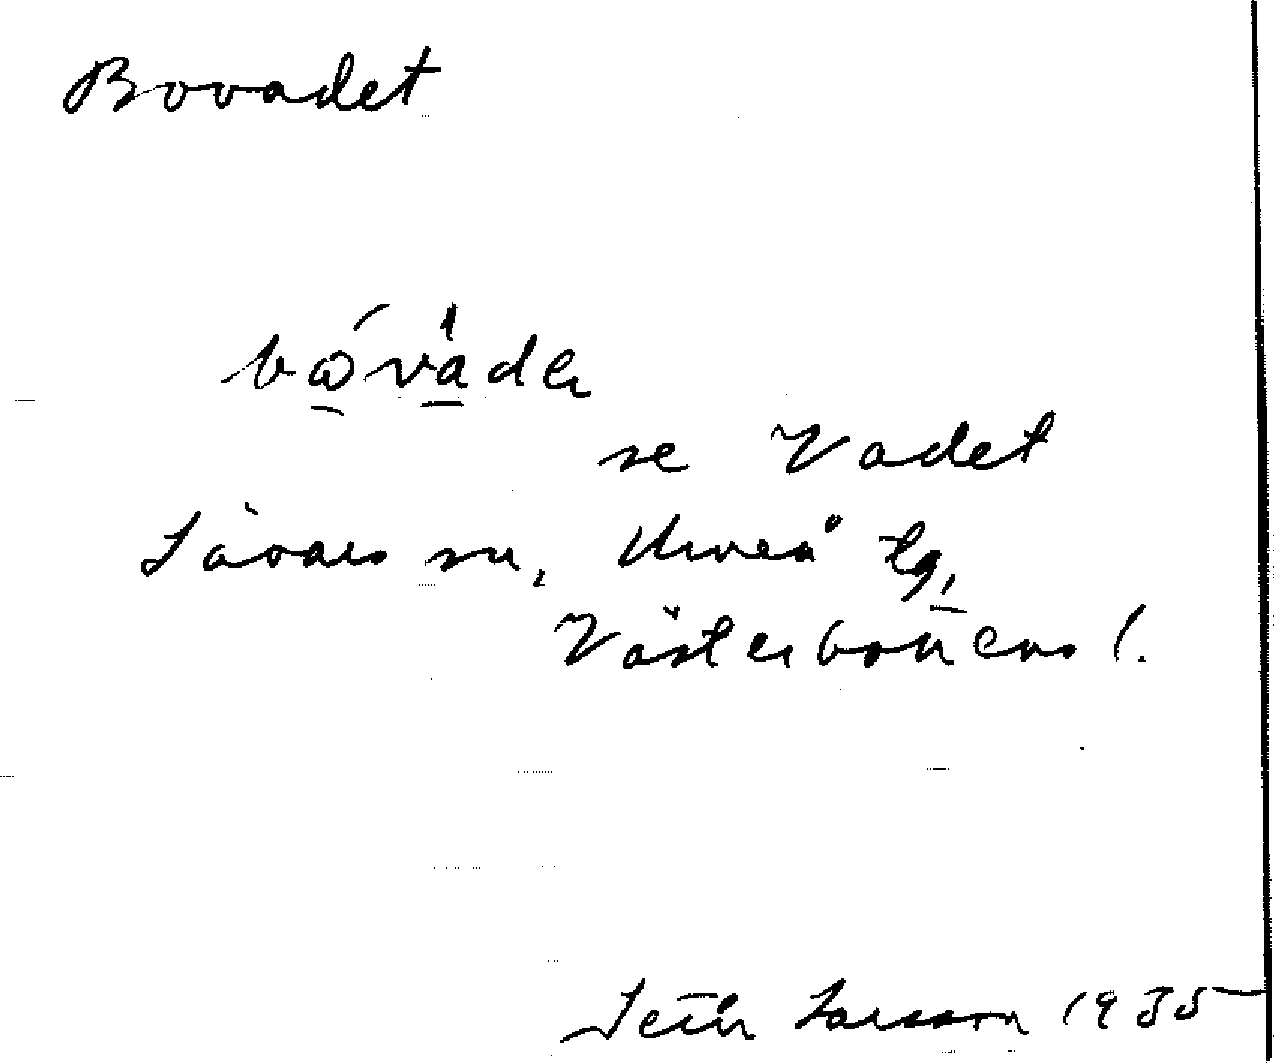 Bovadet
se Vadet
Sävars sn, Umeå tg,
Västerbottens l.
Seth Larsson 1935